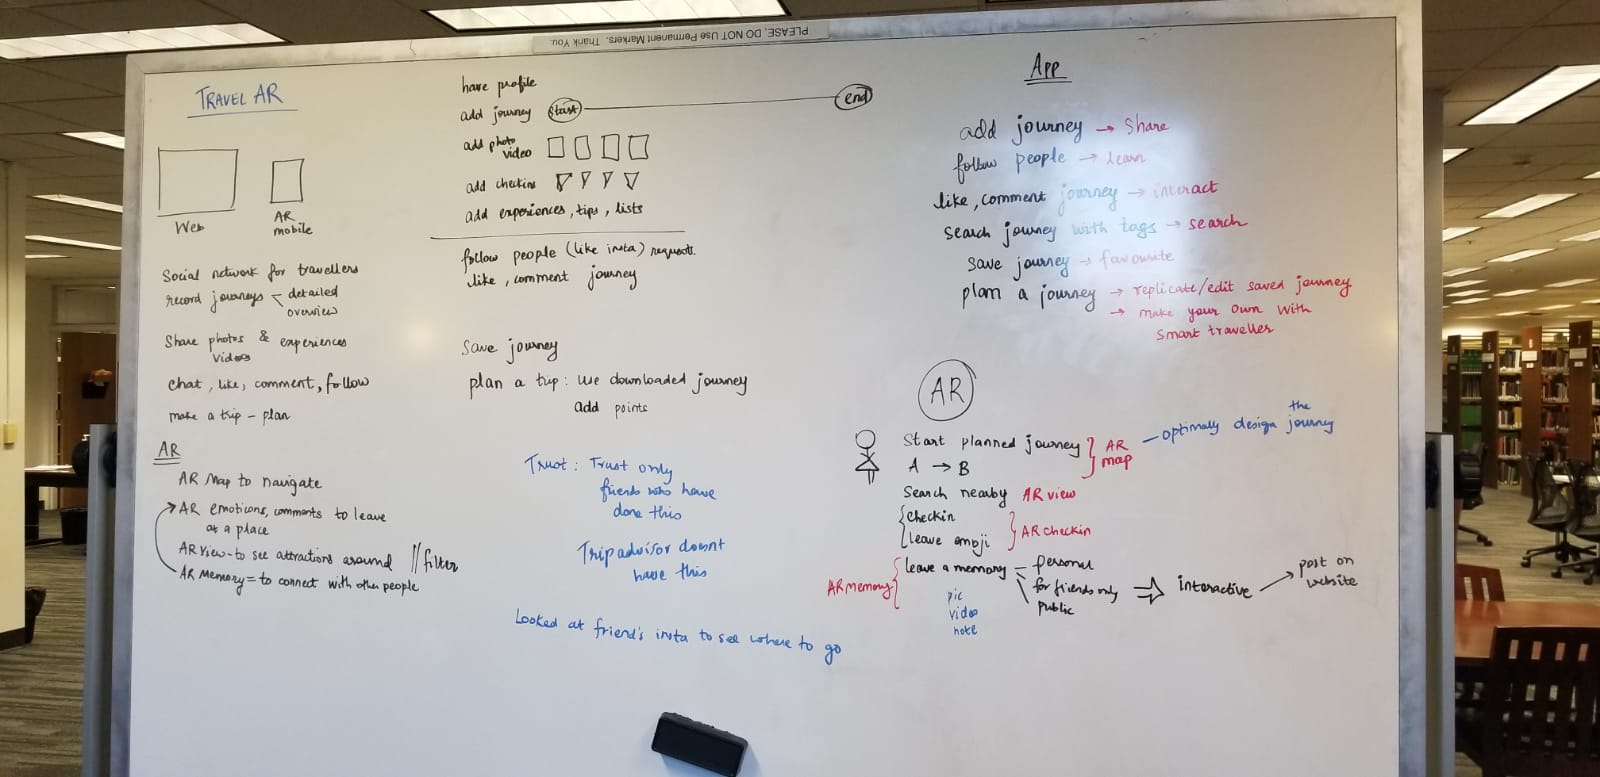 PLEASE, DO NOT Use Permanent Markers. Thank You.
TRAVEL AR
Web
AR
mobile
Social network for travellers
record journeys < detailed
overview
Share photos & experiences
videos
chat, like, comment, follow
make a trip - plan
AR
AR Map to navigate
AR emoticons, comments to leave
at a place
AR view - to see attractions around // filter
AR Memory = to connect with other people
have profile
add journey start end
add photo
video
add checkins
add experiences, tips, lists
follow people (like insta) requests
like, comment journey
Save journey
plan a trip : use downloaded journey
add points
Trust : Trust only
friends who have
done this
Tripadvisor doesnt
have this
Looked at friend's insta to see where to go
App
add journey → Share
follow people → learn
like, comment journey → interact
search journey with tags → search
save journey → favourite
plan a journey → replicate/edit saved journey
→ make your own with
smart traveller
AR
Start planned journey } AR map — optimally design the journey
A → B
Search nearby AR view
{ Checkin
leave emoji } AR checkin
AR memory { leave a memory — personal
for friends only
public
pic
video
note
⇒ interactive → post on
website